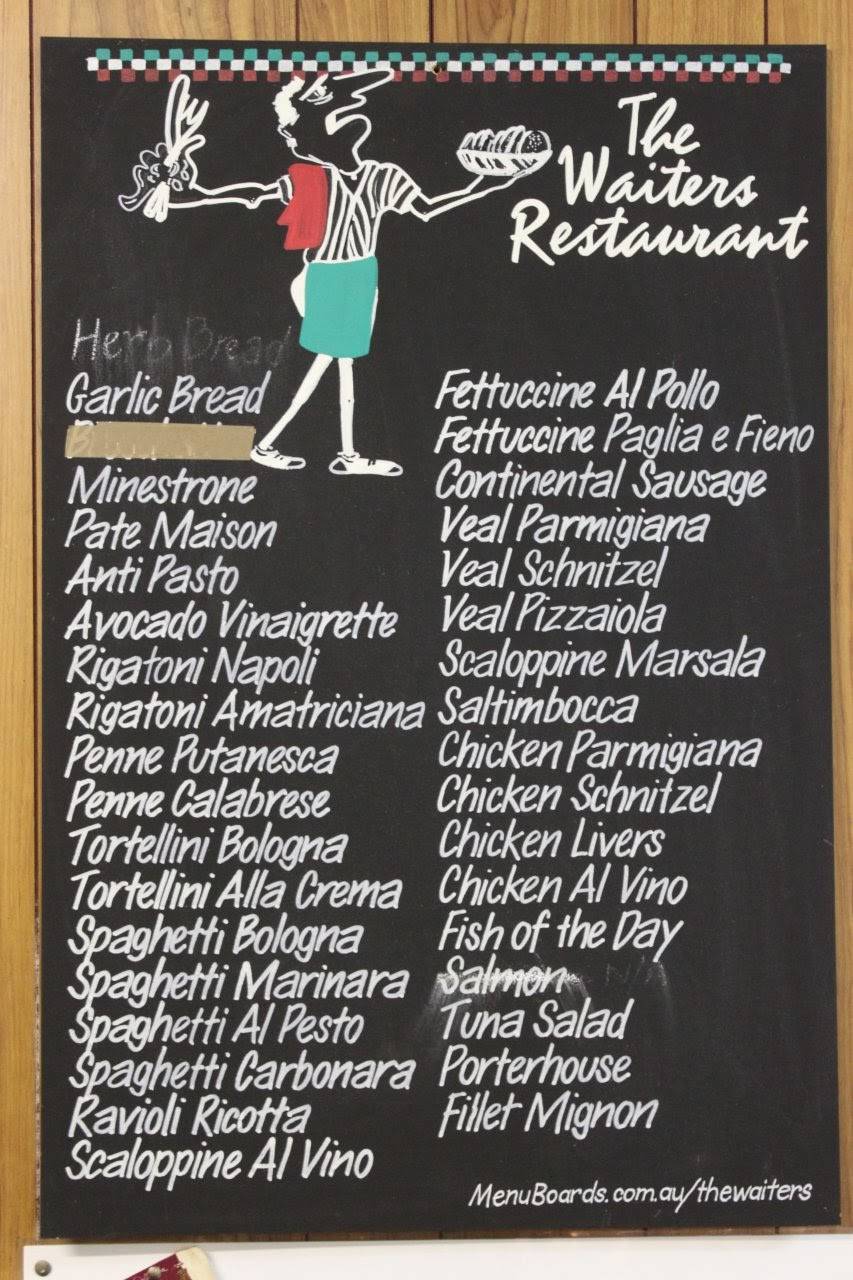 The
Waiters
Restaurant
Herb Bread
Garlic Bread
Minestrone
Pate Maison
Anti Pasto
Avocado Vinaigrette
Rigatoni Napoli
Rigatoni Amatriciana
Penne Putanesca
Penne Calabrese
Tortellini Bologna
Tortellini Alla Crema
Spaghetti Bologna
Spaghetti Marinara
Spaghetti Al Pesto
Spaghetti Carbonara
Ravioli Ricotta
Scaloppine Al Vino
Fettuccine Al Pollo
Fettuccine Paglia e Fieno
Continental Sausage
Veal Parmigiana
Veal Schnitzel
Veal Pizzaiola
Scaloppine Marsala
Saltimbocca
Chicken Parmigiana
Chicken Schnitzel
Chicken Livers
Chicken Al Vino
Fish of the Day
Salmon
Tuna Salad
Porterhouse
Fillet Mignon
MenuBoards.com.au/thewaiters